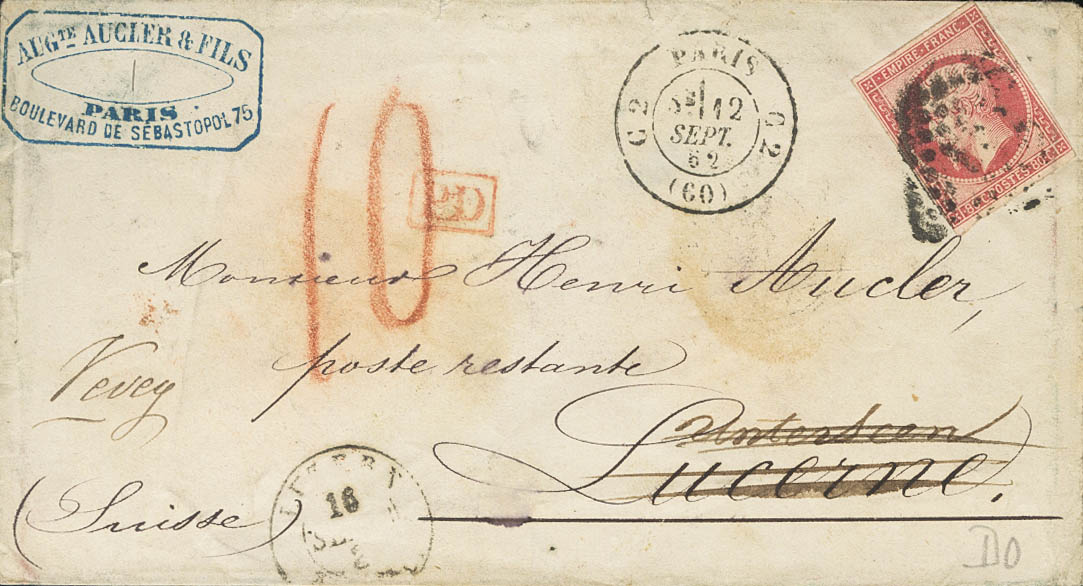 AUGTE AUCLER & FILS
PARIS
BOULEVARD DE SÉBASTOPOL 75
PARIS
C 2
C 2
12
SEPT.
62
(60)
EMPIRE FRANC
80 C POSTES 80 C
10
PD
Monsieur Henri Aucler,
poste restante
Vevey
Unterseen
Lucerne.
(Suisse)
LUZERN
16
DO